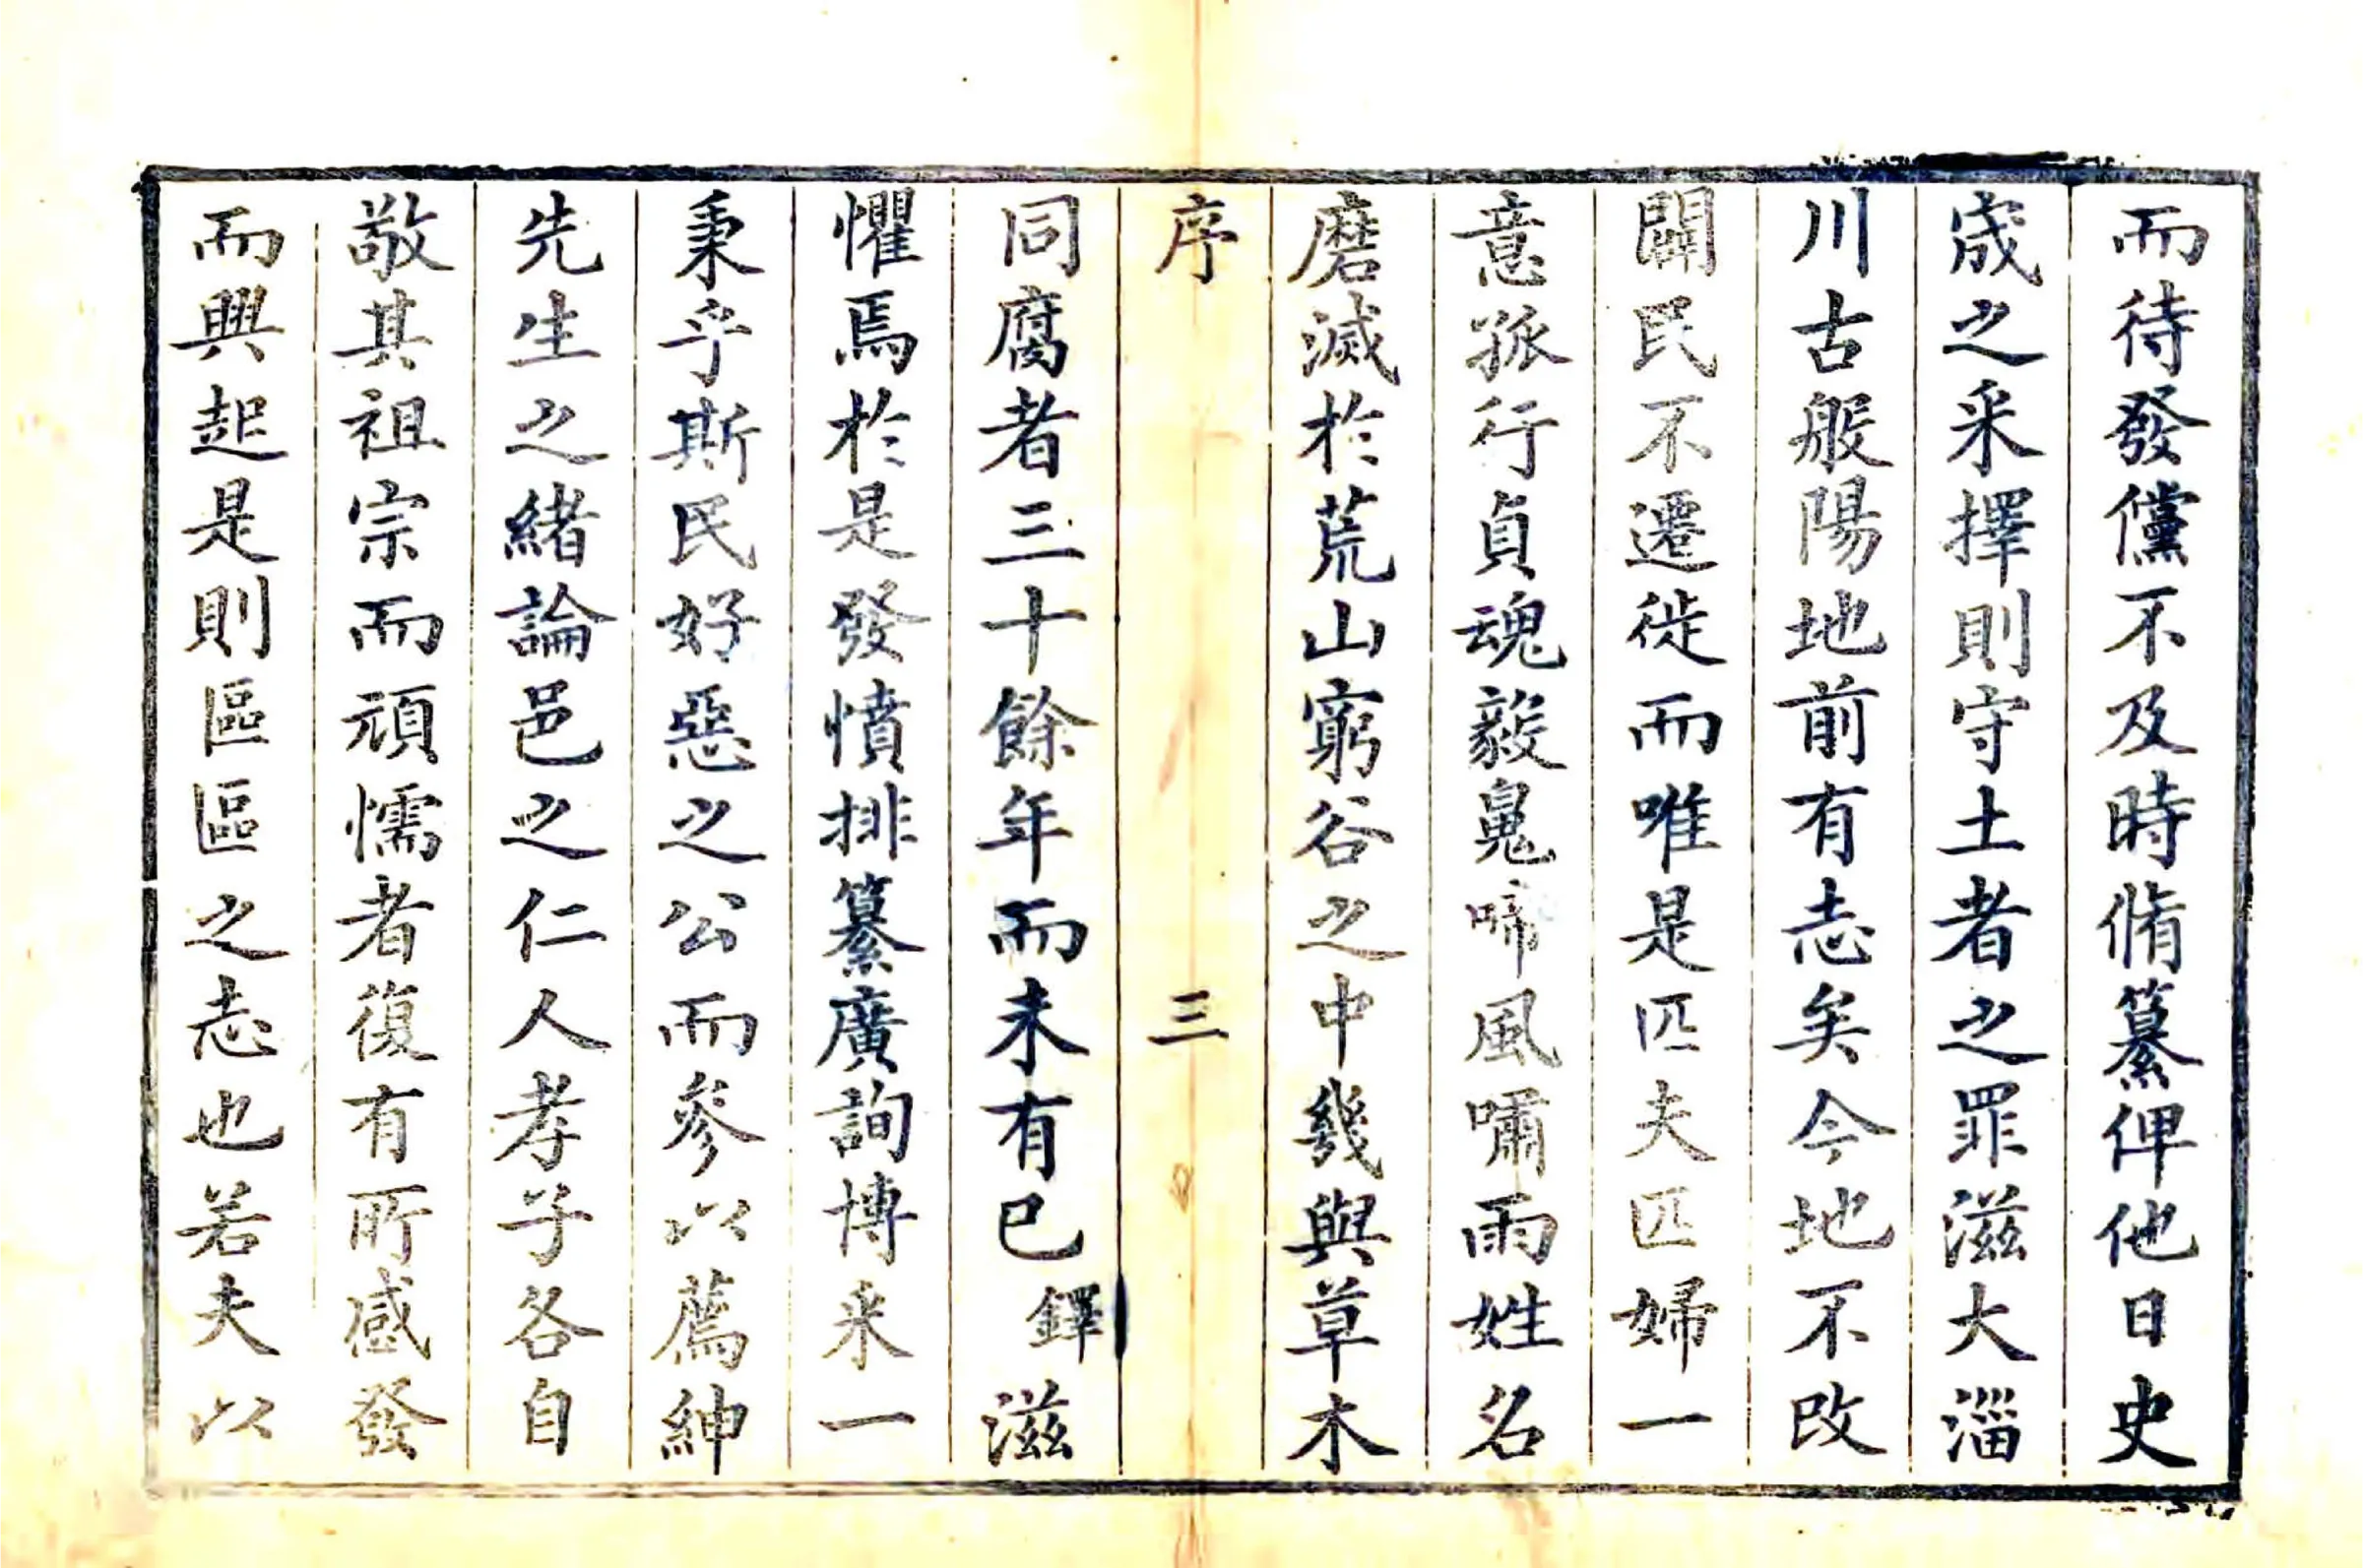 而待發儻不及時脩纂俾他日史
宬之采擇則守土者之罪滋大淄
川古般陽地前有志矣今地不改
闢民不遷徙而唯是匹夫匹婦一
意孤行貞魂毅鬼啼風嘯雨姓名
磨滅於荒山窮谷之中幾與草木
序 三
同腐者三十餘年而未有已鐸滋
懼焉於是發憤排纂廣詢博采一
秉乎斯民好惡之公而參以薦紳
先生之緒論邑之仁人孝子各自
敬其祖宗而頑懦者復有所感發
而興起是則區區之志也若夫以